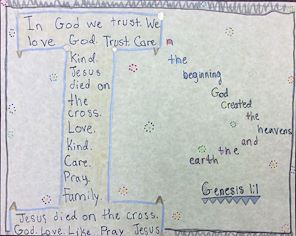 In God we trust. We
love God. Trust. Care
Kind.
Jesus
died on
the
cross.
Love.
Kind.
Care.
Pray.
Family.
Jesus died on the cross.
God. Love. Like. Pray Jesus
In
the
beginning
God
Created
the
heavens
and
the
earth
Genesis 1:1